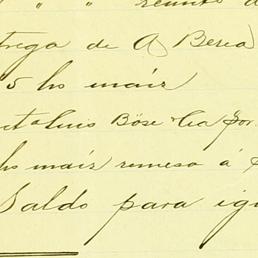 " " reunto d
trega de A Berea
5 hs mais
ct a Luis Böse & Cia Por
hs mais remesa á
Saldo para igu